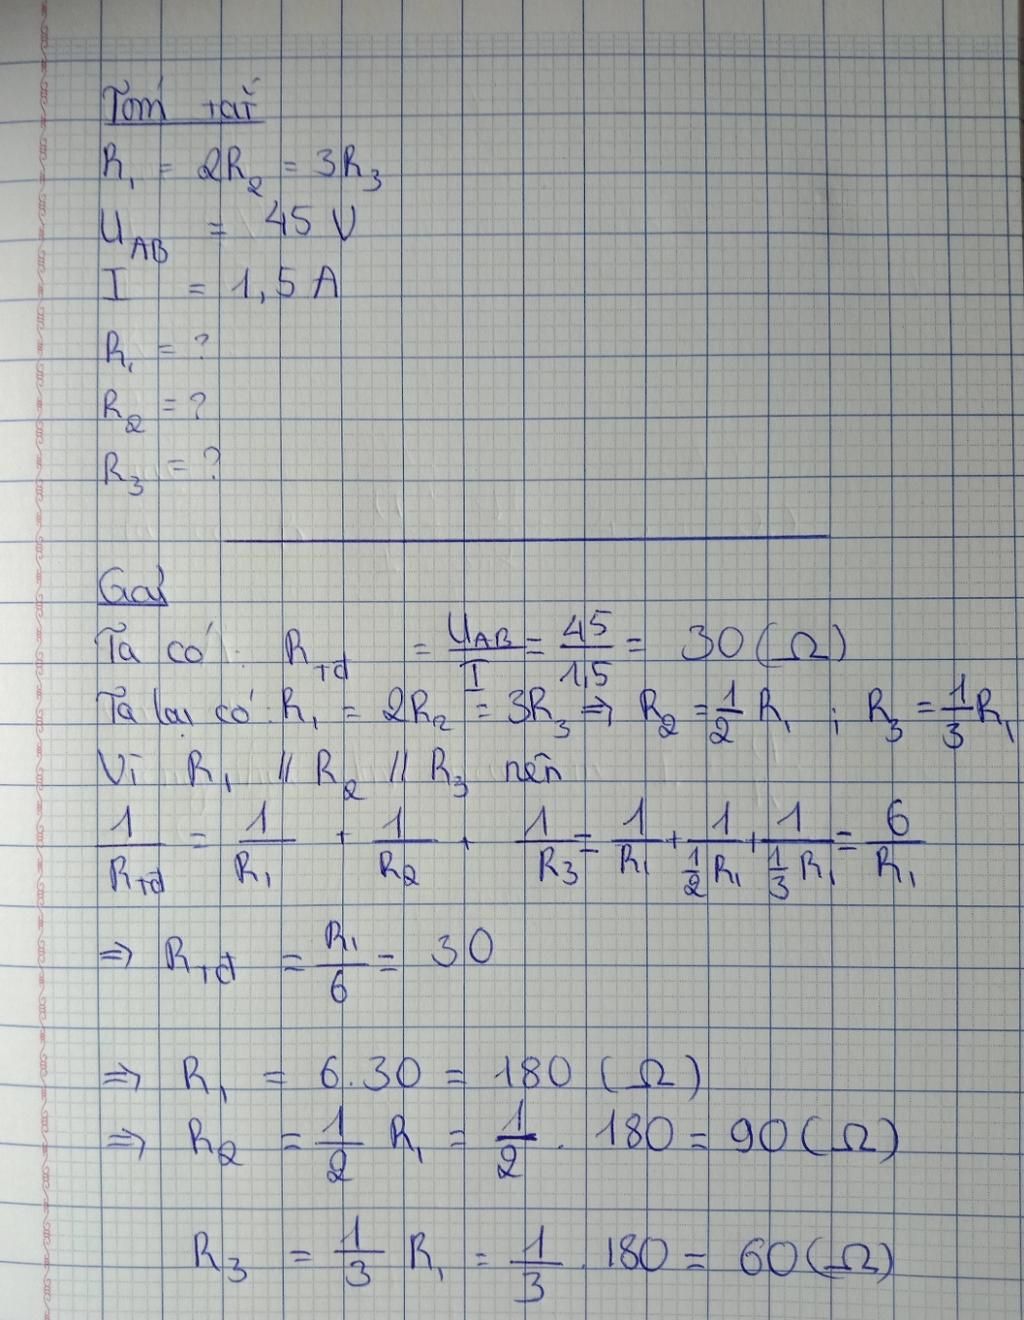 Tóm tắt
R₁ = 2R₂ = 3R₃
U_AB = 45 V
I = 1,5 A
R₁ = ?
R₂ = ?
R₃ = ?
Giải
Ta có: R_tđ = U_AB/I = 45/1,5 = 30 (Ω)
Ta lại có: R₁ = 2R₂ = 3R₃ ⇒ R₂ = 1/2 R₁ ; R₃ = 1/3 R₁
Vì R₁ // R₂ // R₃ nên
1/R_tđ = 1/R₁ + 1/R₂ + 1/R₃ = 1/R₁ + 1/(1/2 R₁) + 1/(1/3 R₁) = 6/R₁
⇒ R_tđ = R₁/6 = 30
⇒ R₁ = 6.30 = 180 (Ω)
⇒ R₂ = 1/2 R₁ = 1/2 . 180 = 90 (Ω)
R₃ = 1/3 R₁ = 1/3 . 180 = 60 (Ω)